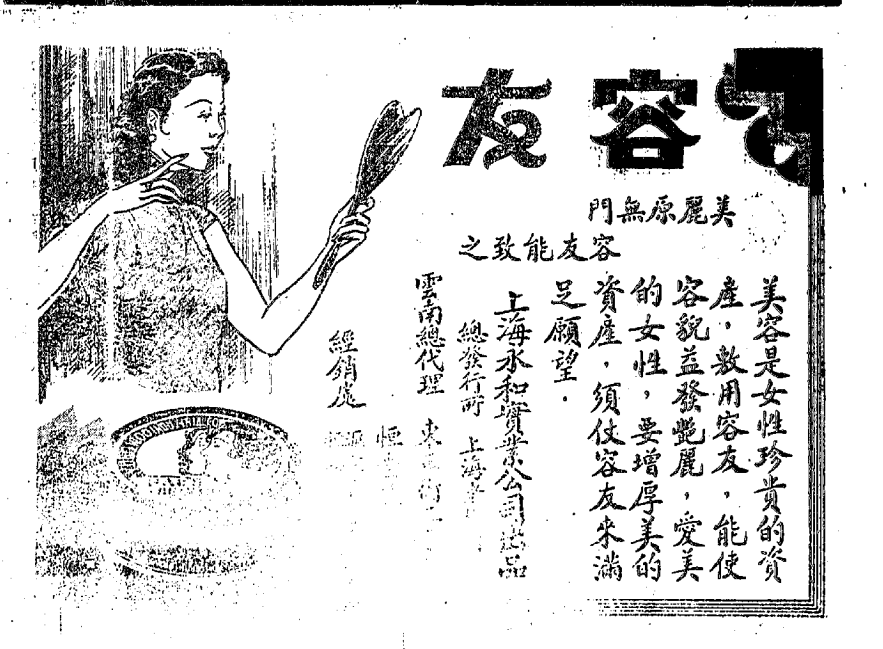 容友
美麗原無門
容友能致之
美容是女性珍貴的資
產，敷用容友，能使
容貌益發艷麗，愛美
的女性，要增厚美的
資產，須仗容友來滿
足願望．
上海永和實業公司出品
總發行所 上海
雲南總代理
經銷處